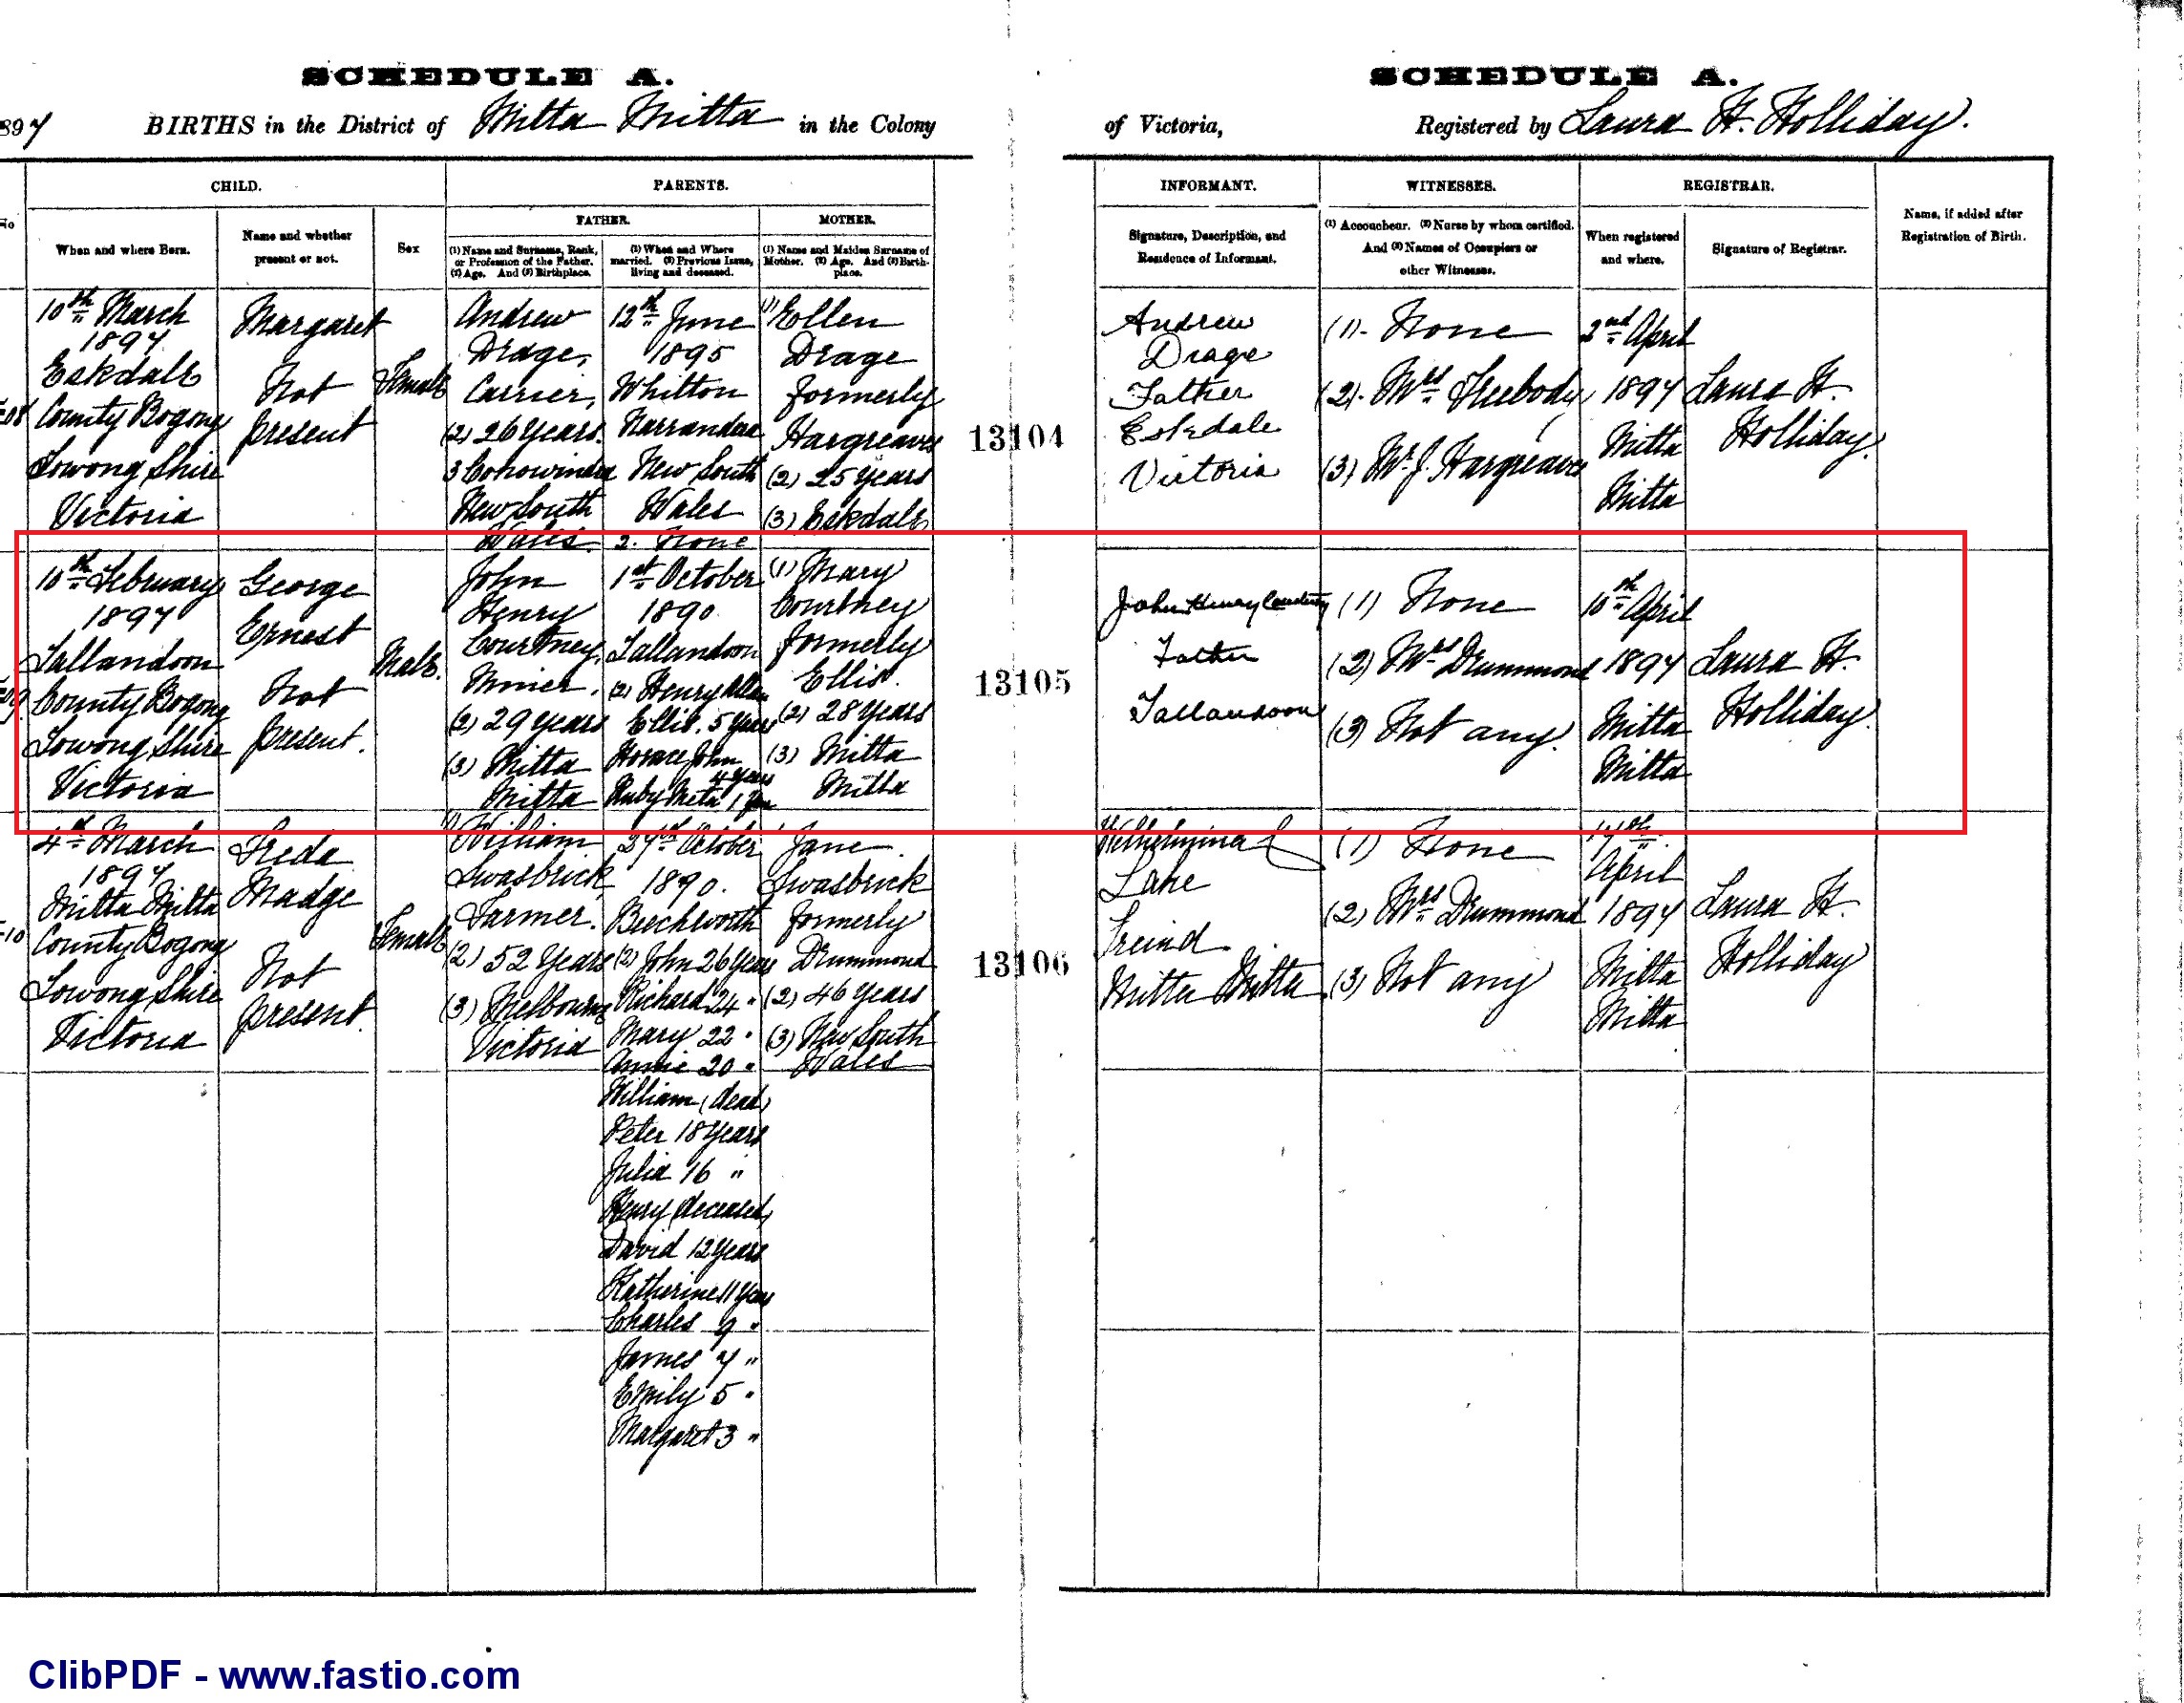 SCHEDULE A.
897 BIRTHS in the District of Mitta Mitta in the Colony
SCHEDULE A.
of Victoria, Registered by Laura H. Holliday.
CHILD.
PARENTS.
No
When and where Born.
Name and whether
present or not.
Sex
FATHER.
(1) Name and Surname, Rank,
or Profession of the Father.
(2) Age. And (3) Birthplace.
(1) When and Where
married. (2) Previous Issue,
living and deceased.
MOTHER.
(1) Name and Maiden Surname of
Mother. (2) Age. And (3) Birth-
place.
INFORMANT.
Signature, Description, and
Residence of Informant.
WITNESSES.
(1) Accoucheur. (2) Nurse by whom certified.
And (3) Names of Occupiers or
other Witnesses.
REGISTRAR.
When registered
and where.
Signature of Registrar.
Name, if added after
Registration of Birth.
08
10th March
1897
Eskdale
County Bogong
Towong Shire
Victoria
Margaret
Not
present
Female
Andrew
Drage,
Carrier,
(2) 26 Years.
3 Conowindra
New South
Wales.
12th June
1895
Whitton
Narrandera
New South
Wales
2. None
(1) Ellen
Drage
formerly
Hargreaves
(2) 25 years
(3) Eskdale
13104
Andrew
Drage
Father
Eskdale
Victoria
(1). None
(2). Mrs Freebody
(3) Mr J. Hargreaves
2nd April
1897
Mitta
Mitta
Laura H.
Holliday.
09.
10th February
1897
Tallandoon
County Bogong
Towong Shire
Victoria
George
Ernest
Not
present.
Male.
John
Henry
Courtney,
Miner.
(2) 29 years
(3) Mitta
Mitta
1st October
1890
Tallandoon
(2) Henry Allan
Ellis. 5 Years
Horace John
4 years
Ruby Meta 1 Year
(1) Mary
Courtney
formerly
Ellis.
(2) 28 Years
(3) Mitta
Mitta
13105
John Henry Courtney
Father
Tallandoon
(1) None
(2) Mrs Drummond
(3) Not any.
10th April
1897
Mitta
Mitta
Laura H.
Holliday.
10
4th March
1897
Mitta Mitta
County Bogong
Towong Shire
Victoria
Freda
Madge
Not
present.
Female
William
Swasbrick
Farmer.
(2) 52 Years
(3) Melbourne
Victoria
27th October
1890.
Beechworth
(2) John 26 Years
Richard 24 "
Mary 22 "
Annie 20 "
William (dead)
Peter 18 Years
Julia 16 "
Henry (deceased)
David 12 Years
Katherine 11 Years
Charles 9 "
James 7 "
Emily 5 "
Margaret 3 "
Jane
Swasbrick
formerly
Drummond
(2) 46 years
(3) New South
Wales
13106
Wilhelmina
Lake
Freind
Mitta Mitta
(1) None
(2) Mrs Drummond
(3) Not any
17th
April
1897
Mitta
Mitta
Laura H.
Holliday
ClibPDF - www.fastio.com